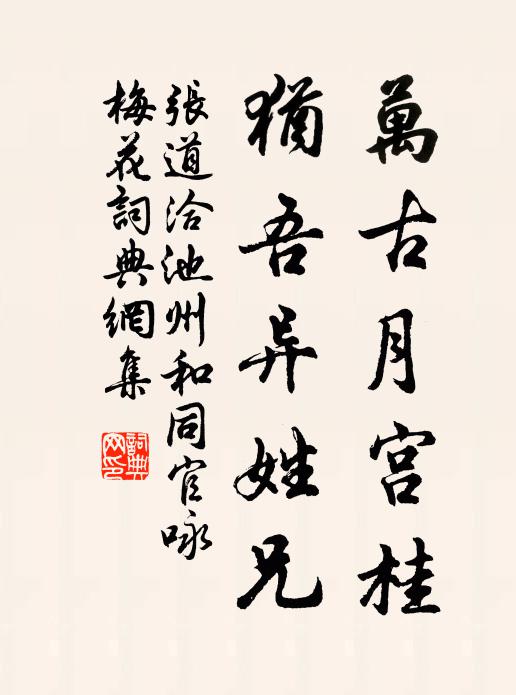 萬古月宫桂
猶吾异姓兄
張道洽池州和同官咏
梅花詞典網集
詞典网印